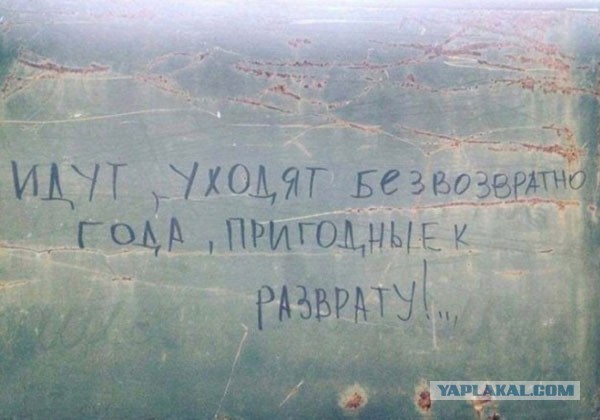 ИДУТ, УХОДЯТ БЕЗВОЗВРАТНО
ГОДА, ПРИГОДНЫЕ К
РАЗВРАТУ!...
YAPLAKAL.COM